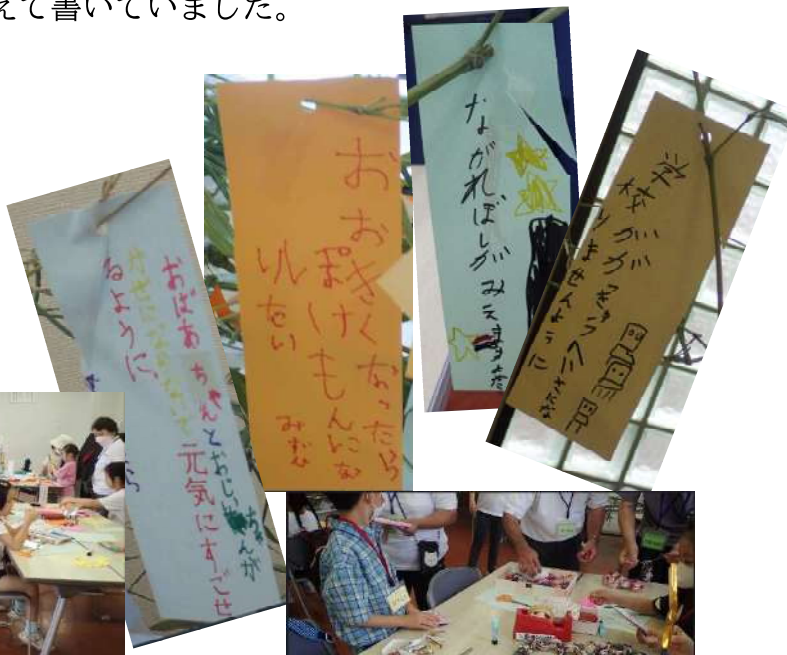 えて書いていました。
おばあちゃんとおじいちゃんが
かぜにならないで元気にすごせ
るように、
おおきくなったら
ぽけもんにな
りたい
ながれぼしがみえます
学校ががっきゅうへいさにな
りませんように